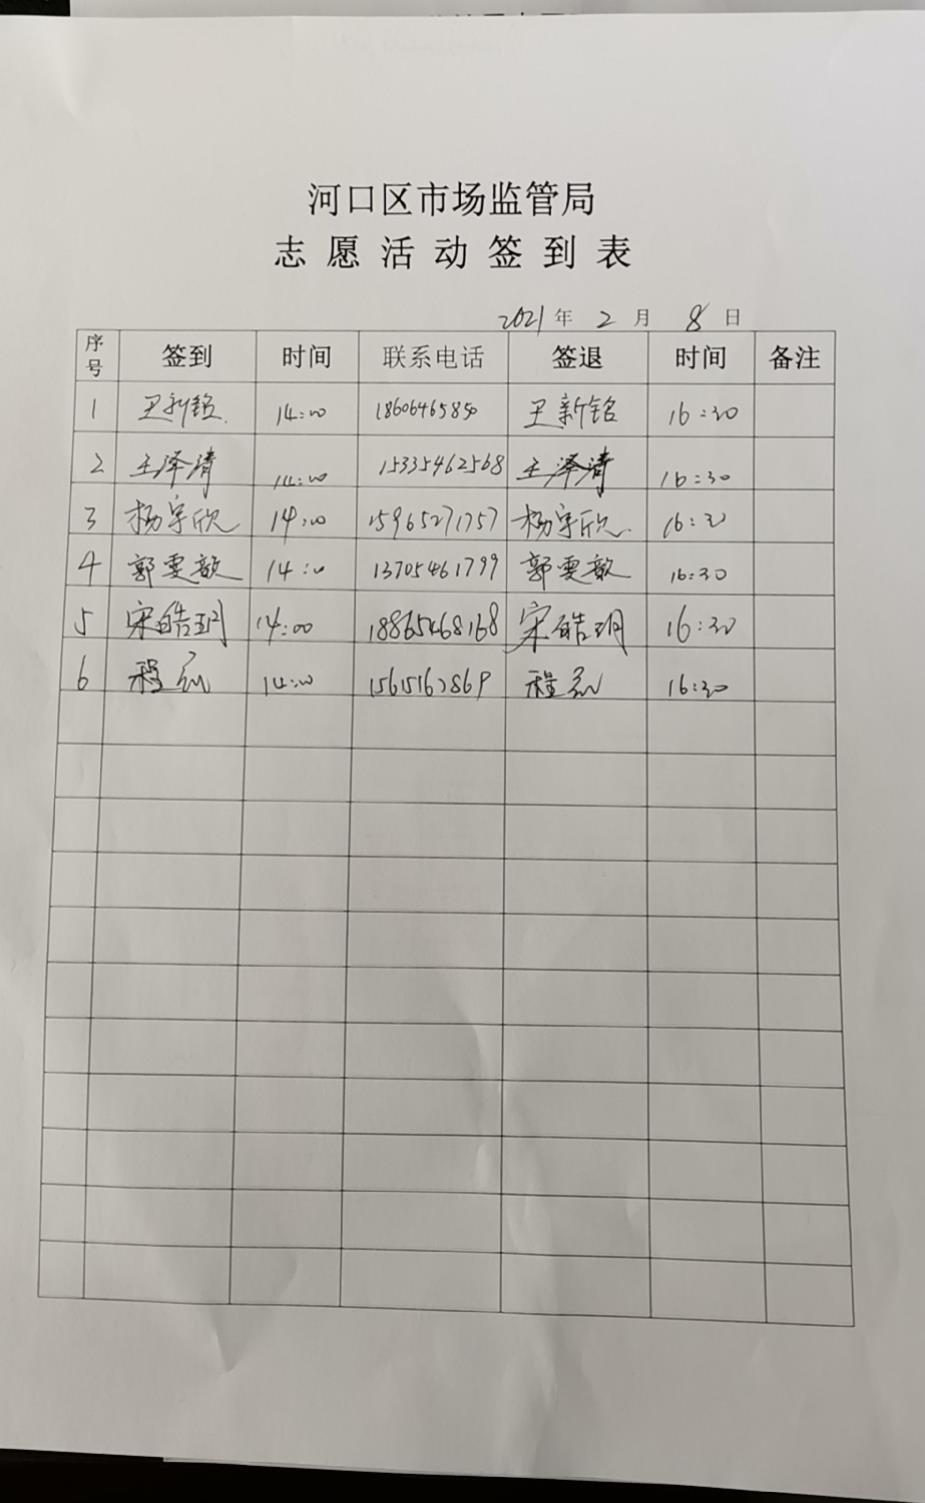 河口区市场监管局
志愿活动签到表
2021年2月8日
序号 签到 时间 联系电话 签退 时间 备注
1 王新铭 14:00 18606465850 王新铭 16:30
2 王泽清 14:00 15335462568 王泽清 16:30
3 杨宇欣 14:00 15965271757 杨宇欣 16:30
4 郭雯歆 14:00 13705461799 郭雯歆 16:30
5 宋皓玥 14:00 18865468168 宋皓玥 16:30
6 程 14:00 程 16:30